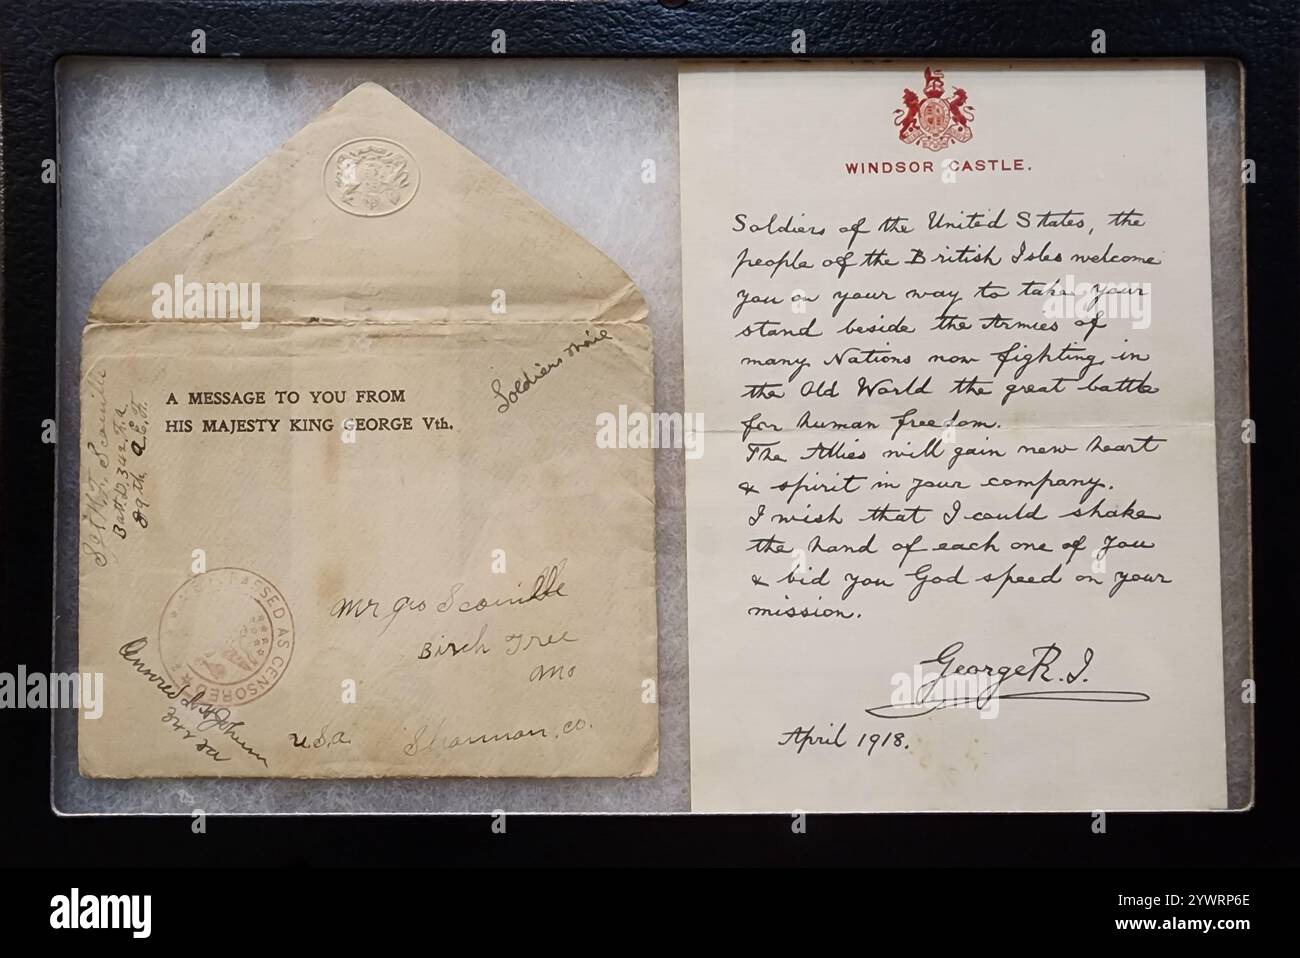 A MESSAGE TO YOU FROM
HIS MAJESTY KING GEORGE Vth.
Soldiers Maile
Sgt W.F. Scoville
Batt. D. 342 F.A
89th A.E.F.
PASSED AS CENSORED
Mr Geo Scoville
Birch Tree
Mo
Shannon, co.
U.S.A.
342 FA
WINDSOR CASTLE.
Soldiers of the United States, the
people of the British Isles welcome
you on your way to take your
stand beside the Armies of
many Nations now fighting in
the Old World the great battle
for human freedom.
The Allies will gain new heart
& spirit in your company.
I wish that I could shake
the hand of each one of you
& bid you God speed on your
mission.
George R.I.
April 1918.
alamy
Image ID: 2YWRP6E
www.alamy.com